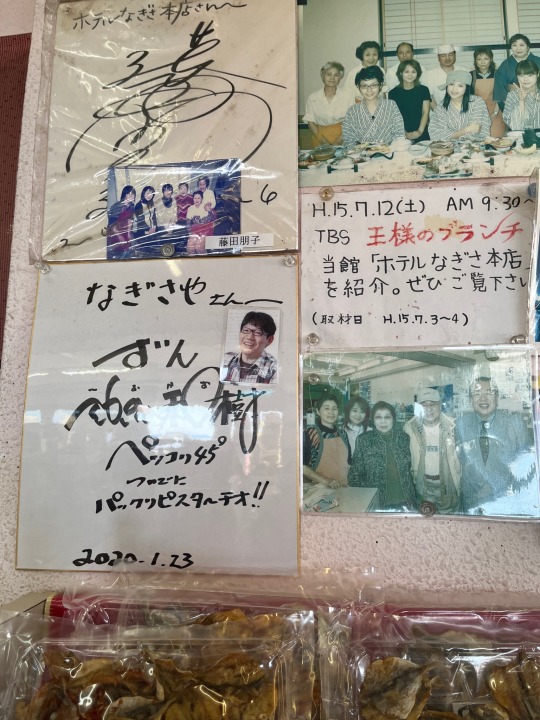 ホテルなぎさ本店さんへ
藤田朋子
H.15.7.12(土) AM 9:30~
TBS 王様のブランチ
当館「ホテルなぎさ本店」
を紹介。ぜひご覧下さい
(取材日 H.15.7.3~4)
なぎさやさんへ
ずん
樹
ペッコリ45°
つつの
パックリピスターチオ!!
2020.1.23